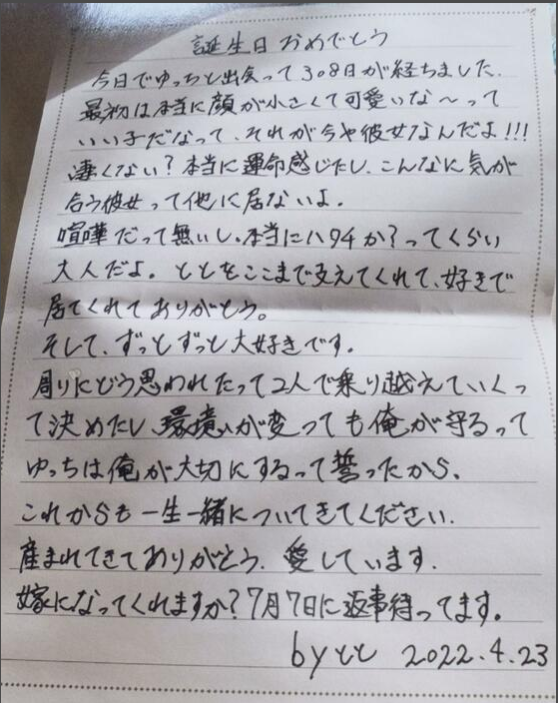 誕生日おめでとう
今日でゆっちと出会って308日が経ちました.
最初は本当に顔が小さくて可愛いな〜って
いい子だなって、それが今や彼女なんだよ!!!
凄くない?本当に運命感じたし、こんなに気が
合う彼女って他に居ないよ.
喧嘩だって無いし、本当にハタチか?ってくらい
大人だよ。ととをここまで支えてくれて、好きで
居てくれてありがとう。
そして、ずっとずっと大好きです.
周りにどう思われたって2人で乗り越えていくっ
て決めたし、環境が変っても俺が守るって
ゆっちは俺が大切にするって誓ったから、
これからも一生一緒についてきてください.
産まれてきてありがとう.愛しています.
嫁になってくれますか?7月7日に返事待ってます。
byとと 2022.4.23